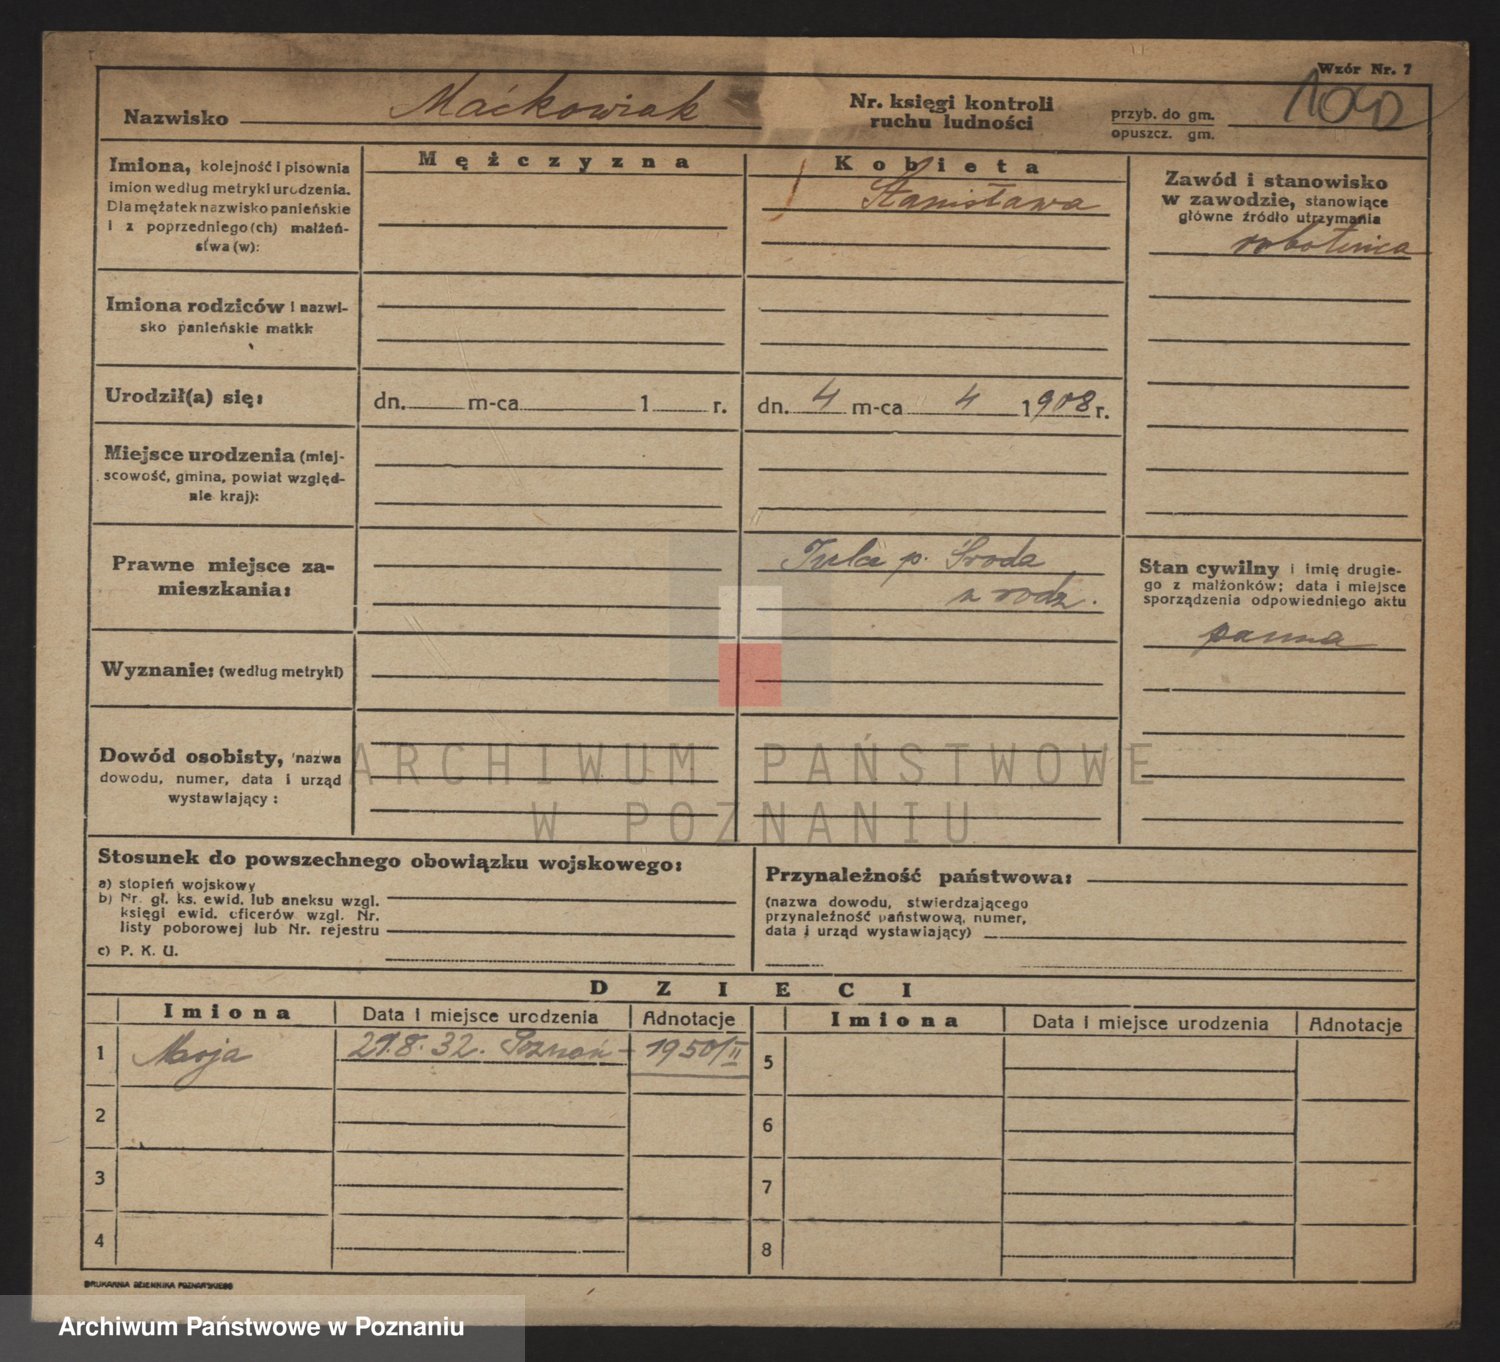 Wzór Nr. 7
Nazwisko Maćkowiak
Nr. księgi kontroli
ruchu ludności
przyb. do gm.
opuszcz. gm.
Imiona, kolejność i pisownia
imion według metryki urodzenia.
Dla mężatek nazwisko panieńskie
i z poprzedniego(ch) małżeń-
stwa(w):
Mężczyzna
Kobieta
Stanisława
Zawód i stanowisko
w zawodzie, stanowiące
główne źródło utrzymania
robotnica
Imiona rodziców i nazwi-
sko panieńskie matki:
Urodził(a) się:
dn. m-ca 1 r.
dn. 4 m-ca 4 1908 r.
Miejsce urodzenia (miej-
scowość, gmina, powiat względ-
nie kraj):
Prawne miejsce za-
mieszkania:
p. Środa
z rodz.
Stan cywilny i imię drugie-
go z małżonków; data i miejsce
sporządzenia odpowiedniego aktu
panna
Wyznanie: (według metryki)
Dowód osobisty, nazwa
dowodu, numer, data i urząd
wystawiający:
ARCHIWUM PAŃSTWOWE
W POZNANIU
Stosunek do powszechnego obowiązku wojskowego:
a) stopień wojskowy
b) Nr. gł. ks. ewid. lub aneksu wzgl.
księgi ewid. oficerów wzgl. Nr.
listy poborowej lub Nr. rejestru
c) P. K. U.
Przynależność państwowa:
(nazwa dowodu, stwierdzającego
przynależność państwową, numer,
data i urząd wystawiający)
DZIECI
Imiona Data i miejsce urodzenia Adnotacje Imiona Data i miejsce urodzenia Adnotacje
1 .8.32. Poznań - 1950/II 5
2 6
3 7
4 8
DRUKARNIA DZIENNIKA POZNAŃSKIEGO
Archiwum Państwowe w Poznaniu